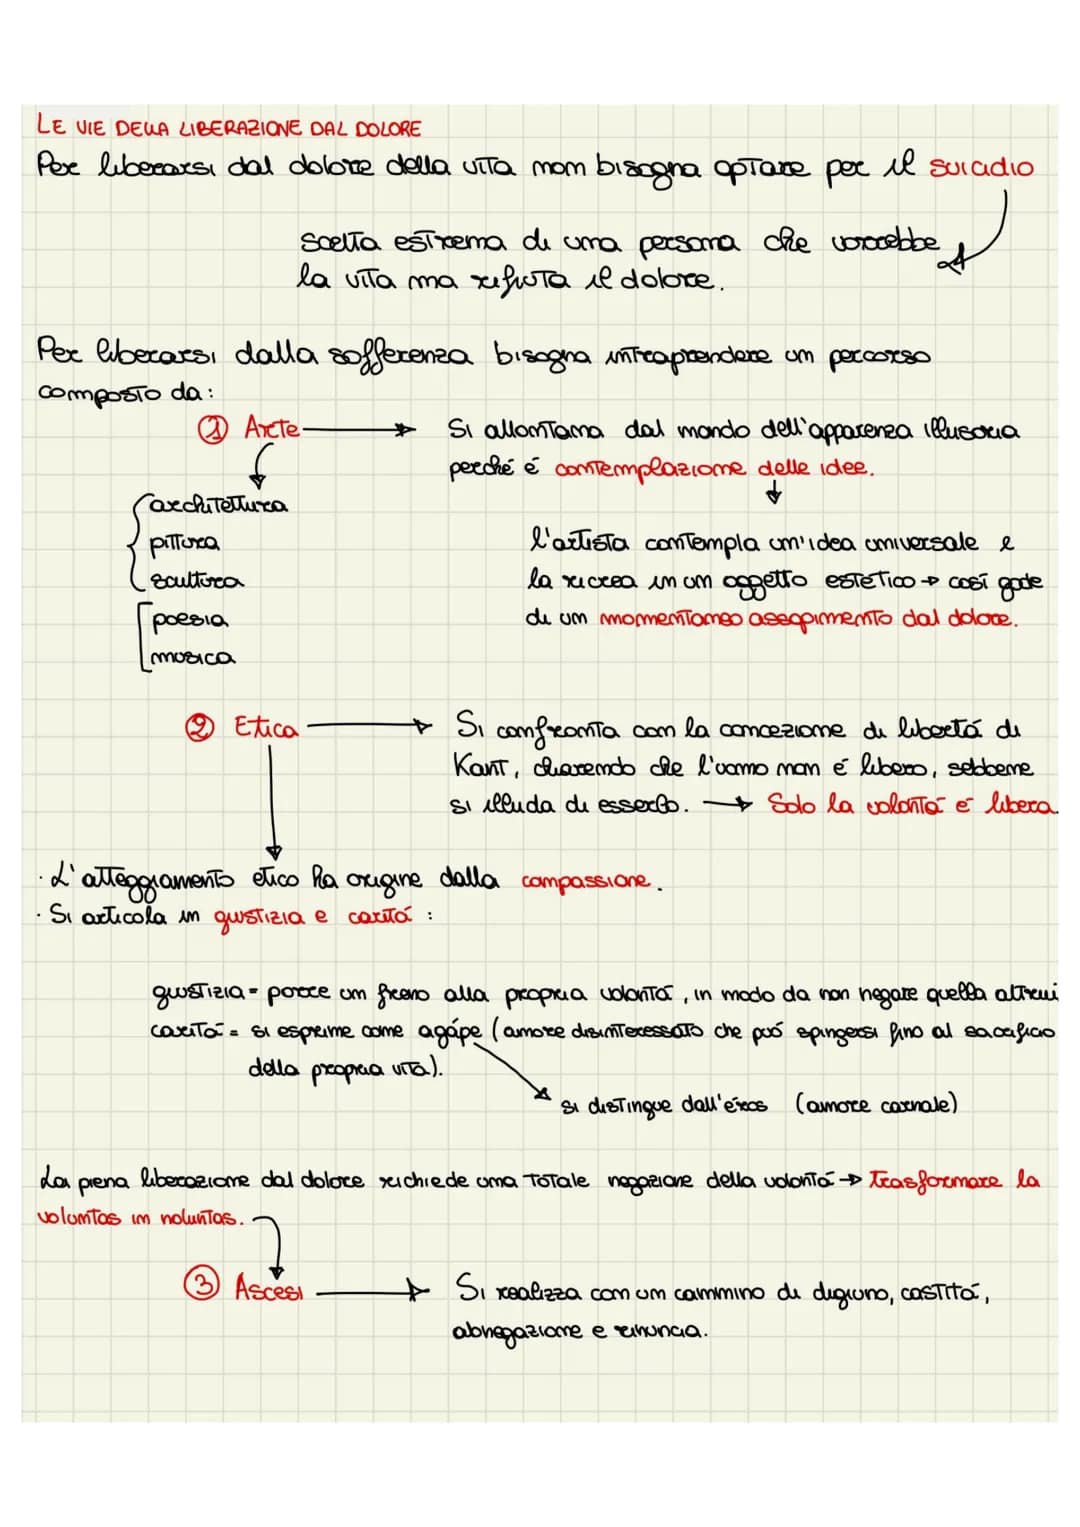 LE VIE DELLA LIBERAZIONE DAL DOLORE
Per liberarsi dal dolore della vita non bisogna optare per il suicidio
scelta estrema di una persona che vorrebbe
la vita ma rifiuta il dolore.
Per liberarsi dalla sofferenza bisogna intraprendere un percorso
composto da:
① Arte → Si allontana dal mondo dell'apparenza illusoria
perché é contemplazione delle idee.
architettura
pittura
scultura
poesia
musica
l'artista contempla un'idea universale e
la ricrea in un oggetto estetico → così gode
di un momentaneo assopimento dal dolore.
② Etica → Si confronta con la concezione di libertá di
Kant, dicendo che l'uomo non é libero, sebbene
si illuda di esserlo. → Solo la volontá é libera.
· L'atteggiamento etico ha origine dalla compassione.
· Si articola in giustizia e caritá :
giustizia = porre un freno alla propria volontá, in modo da non negare quella altrui
caritá = si esprime come agápe (amore disinteressato che puó spingersi fino al sacrificio
della propria vita).
si distingue dall'éros (amore carnale)
La piena liberazione dal dolore richiede una totale negazione della volontá → trasformare la
voluntas in noluntas.
③ Ascesi → Si realizza con un cammino di digiuno, castitá,
abnegazione e rinuncia.